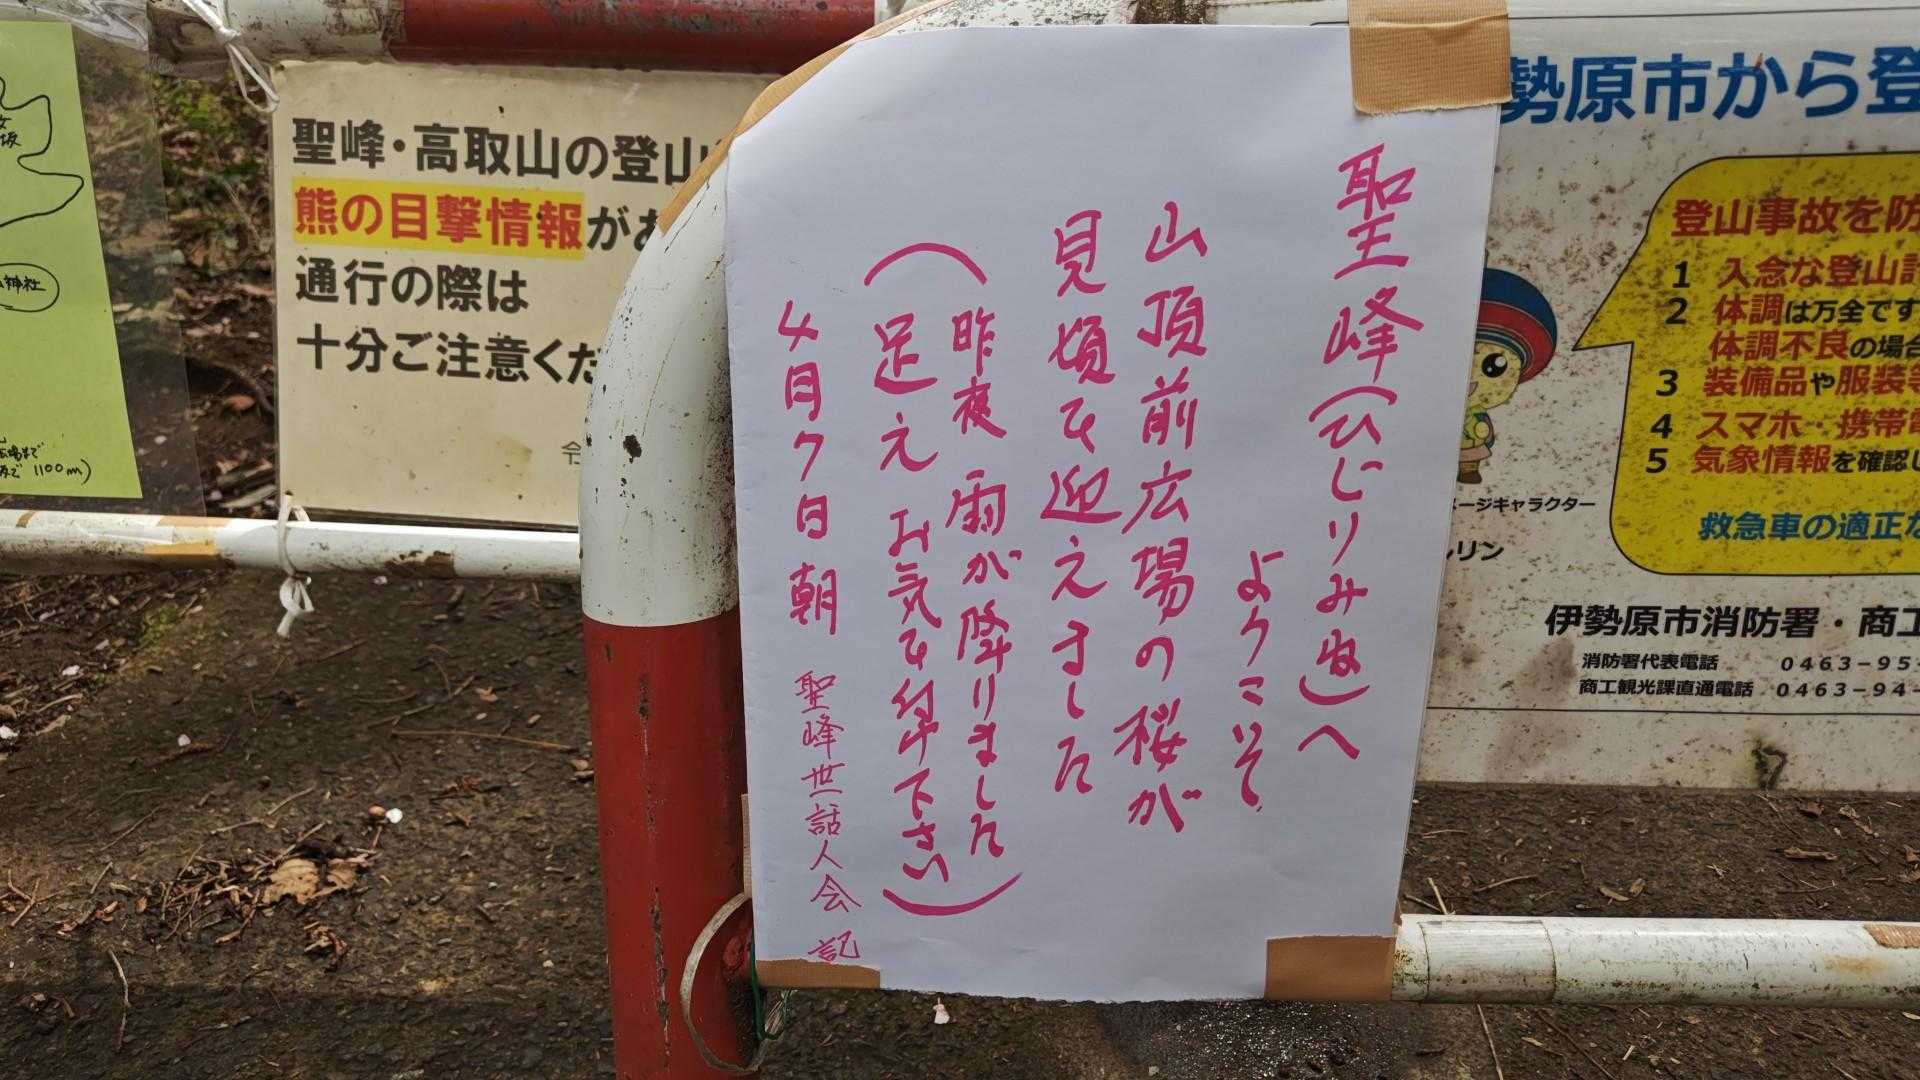 聖峰(ひじりみね)へ
ようこそ
山頂前広場の桜が
見頃を迎えました
(昨夜 雨が降りました
足元 お気を付け下さい)
4月7日 朝 聖峰世話人会 記
聖峰・高取山の登山
熊の目撃情報があ
通行の際は
十分ご注意くだ
令
坂
神社
広場まで
1100m)
勢原市から登
登山事故を防
1 入念な登山計
2 体調は万全です
体調不良の場合
3 装備品や服装等
4 スマホ・携帯電
5 気象情報を確認し
救急車の適正な
メージキャラクター
ルリン
伊勢原市消防署・商工
消防署代表電話 0463-95-
商工観光課直通電話 0463-94-